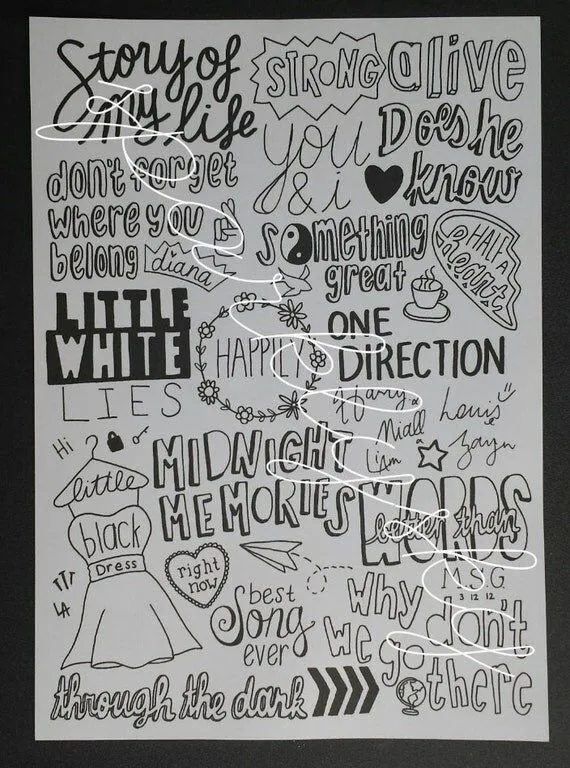 Story of
my life
STRONG
alive
you
& i
Does he
know
don't forget
where you
belong
diana
something
great
HALF A
Heart
LITTLE
WHITE
LIES
HAPPILY
ONE
DIRECTION
Harry
Niall
Liam
Louis
Zayn
Hi
little
black
DRESS
MIDNIGHT
MEMORIES
WORDS
better than
right
now
M.S.G
3 12 12
TTT
LA
best
Song
ever
why
don't
we
go
there
through the dark